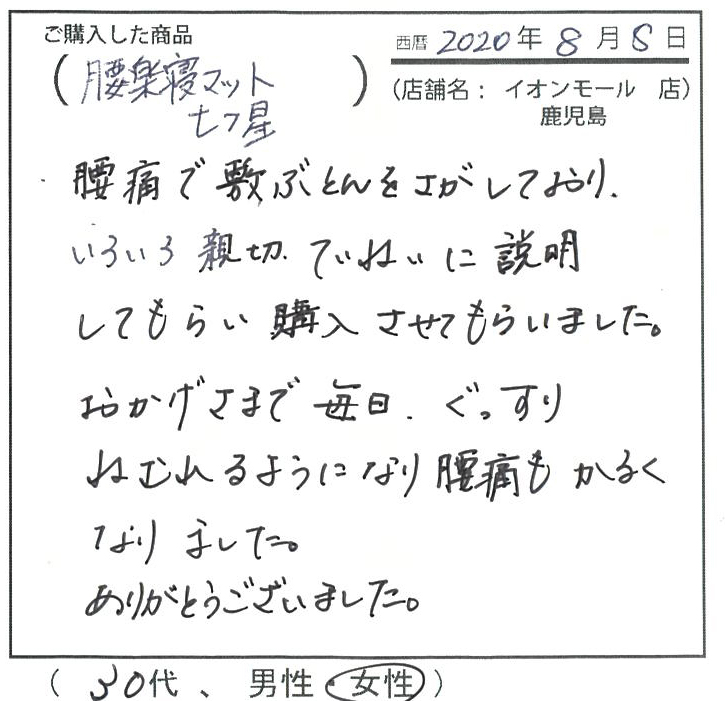 ご購入した商品
西暦 2020年 8月 8日
(腰楽寝マット
七つ星)
(店舗名： イオンモール 店)
鹿児島
腰痛で敷ぶとんをさがしており、
いろいろ親切、ていねいに説明
してもらい購入させてもらいました。
おかげさまで毎日、ぐっすり
ねむれるようになり腰痛もかるく
なりました。
ありがとうございました。
( 30代、男性・女性)